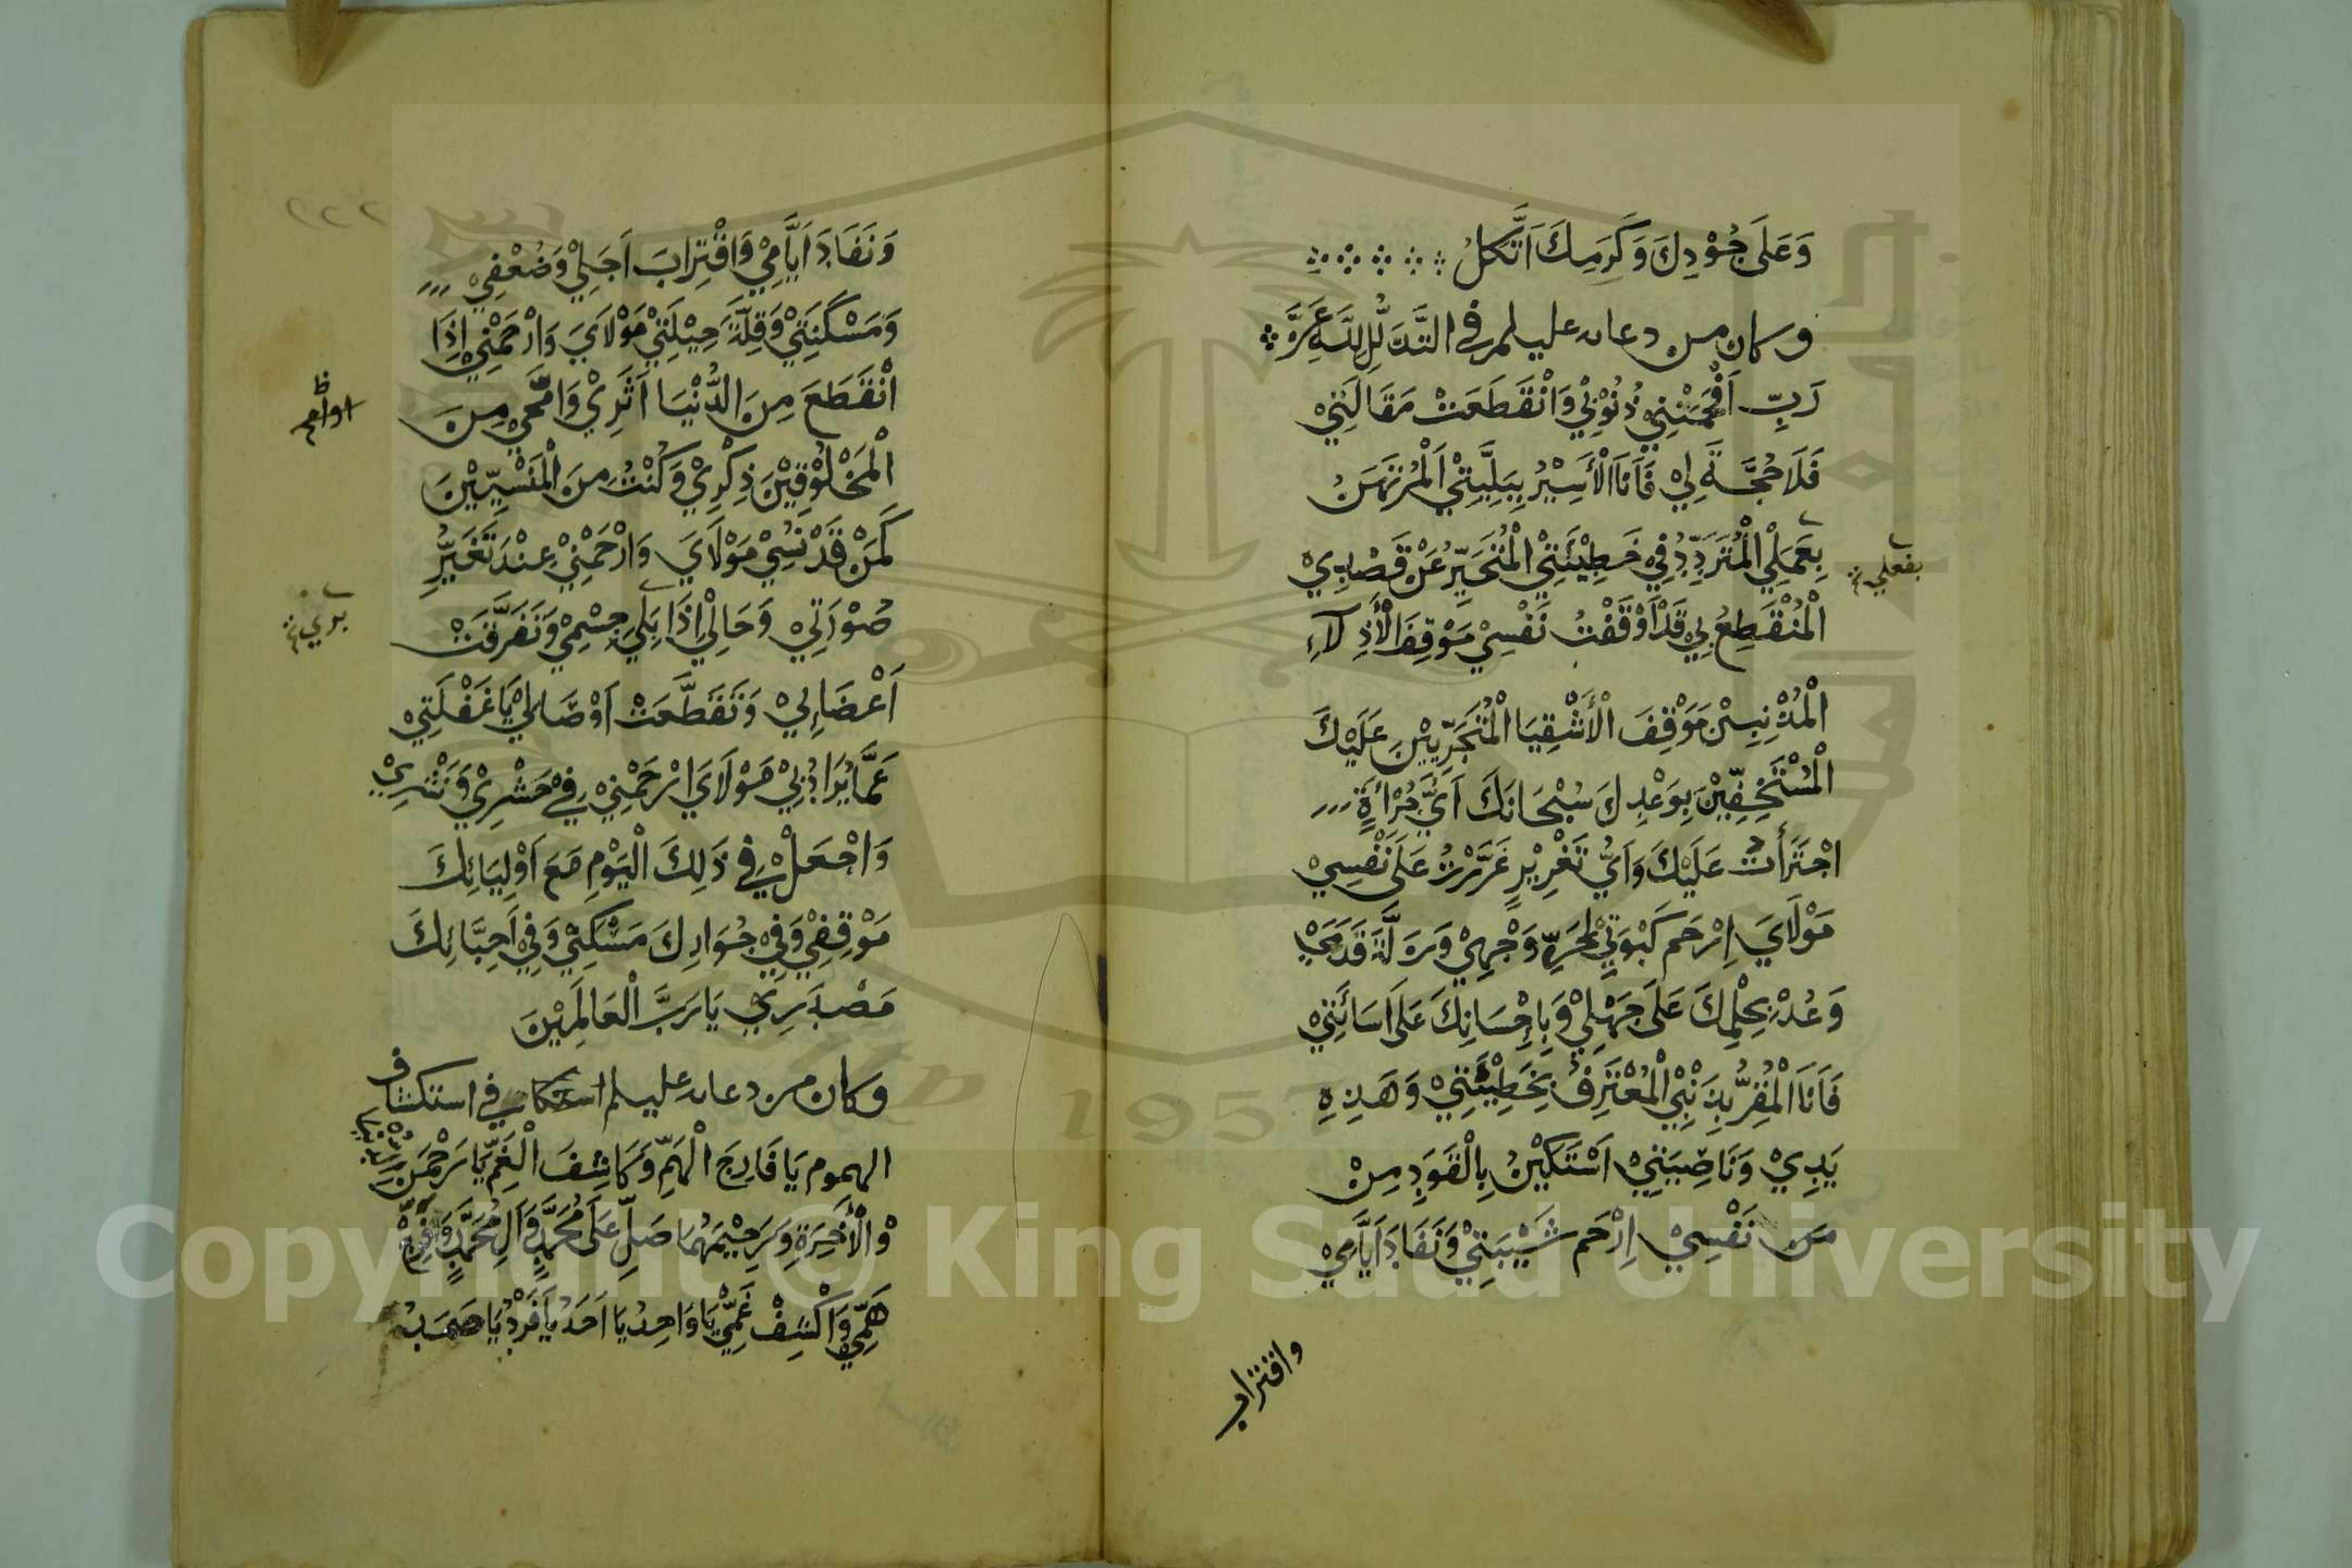 وَعَلَى جُوْدِكَ وَكَرَمِكَ اَتَّكِلُ
وكان من دعائه عليه لم في التَّذَلُّلِ لِلَّهِ عَزَّ
رَبِّ اَفْحَمَتْنِيْ ذُنُوْبِيْ وَانْقَطَعَتْ مَقَالَتِيْ
فَلَا حُجَّةَ لِيْ فَاَنَا الْأَسِيْرُ بِبَلِيَّتِيْ اَلْمُرْتَهَنُ
بِعَمَلِيْ الْمُتَرَدِّدُ فِيْ خَطِيْئَتِيْ الْمُتَحَيِّرُ عَنْ قَصْدِيْ
بفعلي
الْمُنْقَطِعُ بِيْ قَدْ اَوْقَفْتُ نَفْسِيْ مَوْقِفَ الْأَذِلَّاءِ
الْمُذْنِبِيْنَ مَوْقِفَ الْأَشْقِيَا الْمُتَجَرِّيِيْنَ عَلَيْكَ
الْمُسْتَخِفِّيْنَ بِوَعْدِكَ سُبْحَانَكَ اَيَّ جُرْأَةٍ
اجْتَرَأْتُ عَلَيْكَ وَاَيُّ تَغْرِيْرٍ غَرَّرْتُ عَلَى نَفْسِيْ
مَوْلَايَ اِرْحَم كَبْوَتِيْ لِحُرِّ وَجْهِيْ وَزَلَّةَ قَدَمِيْ
وَعُدْ بِحِلْمِكَ عَلَى جَهْلِيْ وَبِاِحْسَانِكَ عَلَى اَسَائَتِيْ
فَاَنَا الْمُقِرُّ بِذَنْبِيْ الْمُعْتَرِفُ بِخَطِيْئَتِيْ وَهَذِهِ
يَدِيْ وَنَاصِيَتِيْ اَسْتَكِيْنُ بِالْقَوَدِ مِنْ
مَن نَفْسِيْ اِرْحَم شَيْبَتِيْ وَنَفَادَ اَيَّامِيْ
واقتراب
وَنَفَادَ اَيَّامِيْ وَاقْتِرَابَ اَجَلِيْ وَضُعْفِيْ
وَمَسْكَنَتِيْ وَقِلَّةَ حِيْلَتِيْ مَوْلَايَ وَارْحَمْنِيْ اِذَا
انْقَطَعَ مِنَ الدُّنْيَا اَثَرِيْ وَامَّحَى مِنَ
الْمَخْلُوْقِيْنَ ذِكْرِيْ وَكُنْتُ مِنَ الْمَنْسِيِّيْنَ
كَمَنْ قَدْ نُسِيْ مَوْلَايَ وَارْحَمْنِيْ عِنْدَ تَغَيُّرِ
صُوْرَتِيْ وَحَالِيْ اِذَا بَلِيَ جِسْمِيْ وَتَفَرَّقَتْ
اَعْضَايِيْ وَتَقَطَّعَتْ اَوْصَالِيْ يَا غَفْلَتِيْ
عَمَّا يُرَادُ بِيْ مَوْلَايَ ارْحَمْنِيْ فِيْ حَشْرِيْ وَنَشْرِيْ
وَاجْعَلْ فِي ذَلِكَ الْيَوْمِ مَعَ اَوْلِيَائِكَ
مَوْقِفِيْ وَفِيْ جُوَارِكَ مَسْكَنِيْ وَفِيْ اَحِبَّائِكَ
مَصْدَرِيْ يَا رَبَّ الْعَالَمِيْنَ
وكان من دعائه عليه لم في استكشاف
الهموم يَا فَارِجَ الْهَمِّ وَكَاشِفَ الْغَمِّ يَا رَحْمَنَ
وَالْأَخِرَةِ وَرَحِيْمَهُمَا صَلِّ عَلَى مُحَمَّدٍ وَآلِ مُحَمَّدٍ وَافْرُجْ
هَمِّيْ وَاكْشِفْ غَمِّيْ يَا وَاحِدُ يَا اَحَدُ يَا فَرْدُ يَا صَمَدُ
Copyright © King Saud University
1957